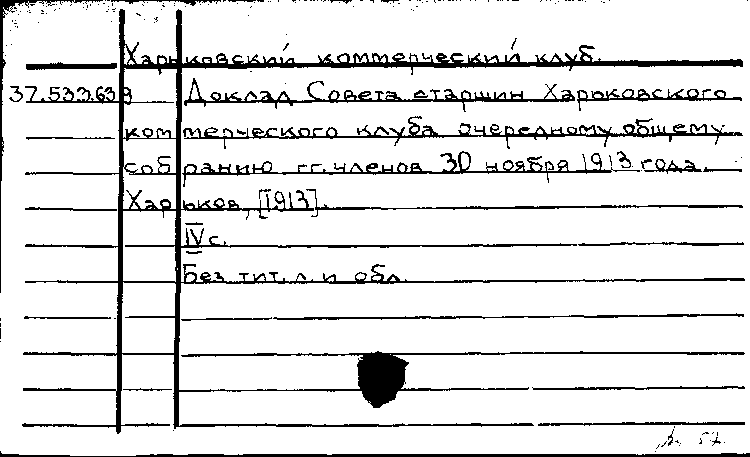 Харьковский коммерческий клуб.
37.533.63в Доклад Совета старшин Харьковского
коммерческого клуба очередному общему
собранию гг. членов 30 ноября 1913 года.
Харьков, [1913].
IV с.
Без тит. л. и обл.